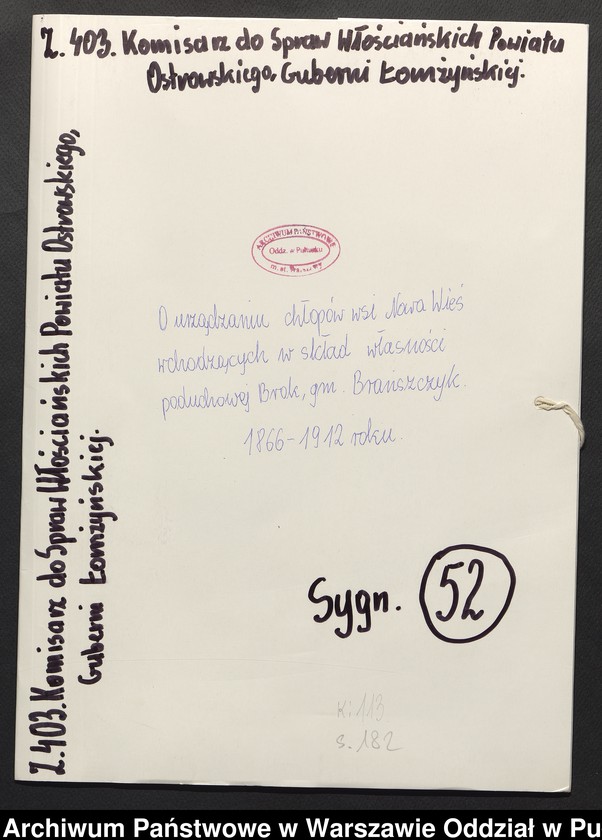 Z. 403. Komisarz do Spraw Włościańskich Powiatu
Ostrowskiego, Guberni Łomżyńskiej.
Z. 403. Komisarz do Spraw Włościańskich Powiatu Ostrowskiego,
Guberni Łomżyńskiej.
ARCHIWUM PAŃSTWOWE
Oddz. w Pułtusku
m. st. Warszawy
O urządzaniu chłopów wsi Nowa Wieś
wchodzących w skład własności
poduchownej Brok, gm. Brańszczyk.
1866-1912 roku.
Sygn. 52
K: 113
s. 182
Archiwum Państwowe w Warszawie Oddział w Pu